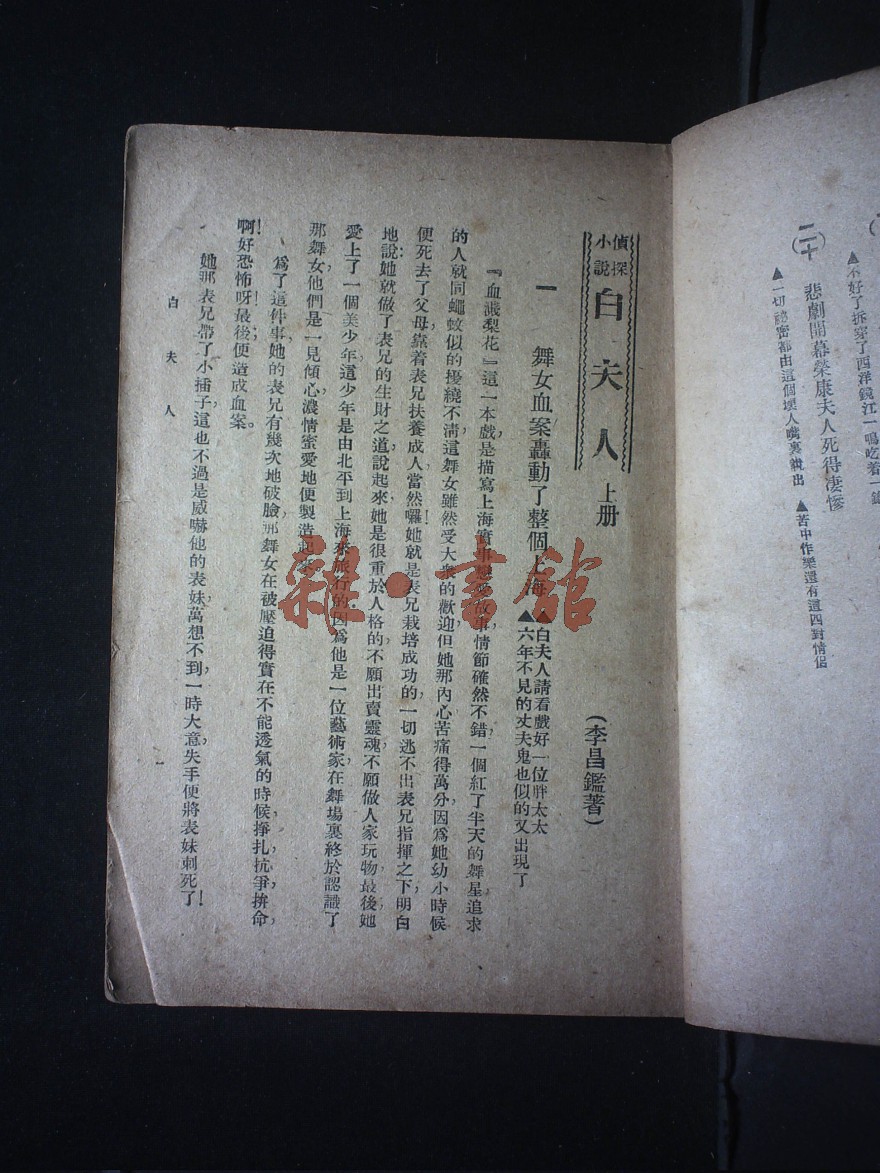 不好了拆穿了西洋鏡江一鳴吃着一
(二十)
悲劇開幕榮康夫人死得凄慘
▲一切祕密都由這個壞人嘴裏說出
▲苦中作樂還有這四對情侶
偵探
小說
白夫人
上册
(李昌鑑著)
一
舞女血案轟動了整個上海
▲白夫人請看戲好一位胖太太
▲六年不見的丈夫鬼也似的又出現了
『血濺梨花』這一本戲是描寫上海實事戀愛故事,情節確然不錯,一個紅了半天的舞星,追求
的人就同蠅蚊似的擾繞不淸,這舞女雖然受大衆的歡迎,但她那內心苦痛得萬分,因爲她幼小時候
便死去了父母,靠着表兄扶養成人,當然囉!她就是表兄栽培成功的,一切逃不出表兄指揮之下,明白
地說:她就做了表兄的生財之道,說起來她是很重於人格的,不願出賣靈魂,不願做人家玩物,最後她
愛上了一個美少年,這少年是由北平到上海來旅行的,因爲他是一位藝術家,在舞場裏終於認識了
那舞女,他們是一見傾心,濃情蜜愛地便製造起來。
爲了這件事,她的表兄有幾次地破臉,那舞女在被壓迫得實在不能透氣的時候,掙扎,抗爭,拚命,
啊!好恐怖呀!最後便造成血案。
她那表兄帶了小插子,這也不過是威嚇他的表妹,萬想不到,一時大意,失手便將表妹刺死了!
白夫人
一
雜·書館